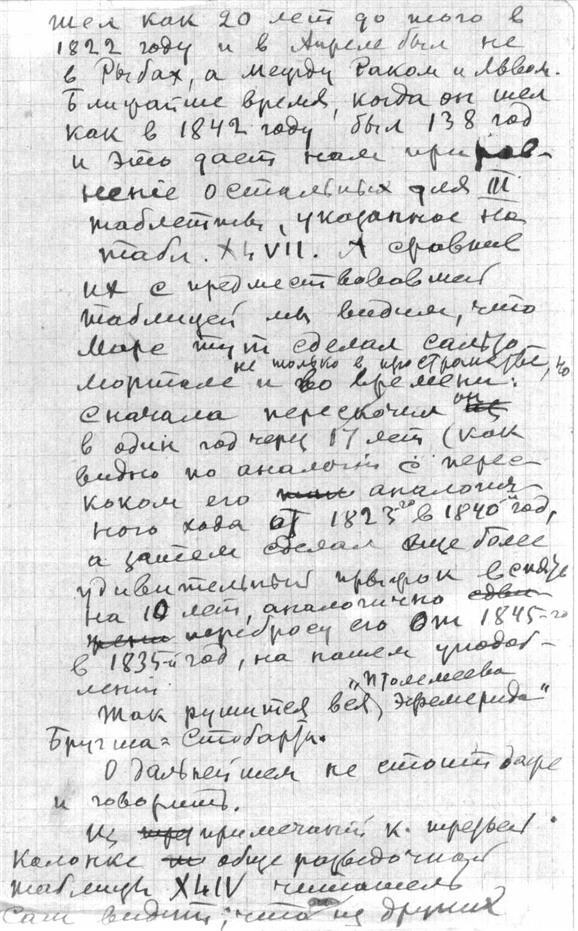 шел как 20 лет до того в
1822 году и в Апреле был не
в Рыбах, а между Раком и Львом.
Ближайше время, когда он шел
как в 1842 году был 138 год
и это дает нам прирав-
нение остальных для III
таблетки, указанное на
табл. XLVII. А сравнив
их с предшествовавшей
таблицей мы видим, что
Марс тут сделал сальто
мортале не только в пространстве, но
и во времени:
сначала перескочил он
в один год через 17 лет (как
видно по аналогии с перес-
коком его аналогич-
ного хода от 1823го в 1840 год,
а затем сделал еще более
удивительный прыжок вспять
на 10 лет, аналогично
перебросу его от 1845-го
в 1835-й год, на нашем уподоб-
лении.
Так рушится вся „Птолемеева Эфемерида“
Бругша=Стобарта.
О дальнейшем не стоит даже
и говорить.
Из примечаний к третьей
колонке обще разведочной
таблицы XLIV читатель
сам видит, что из других